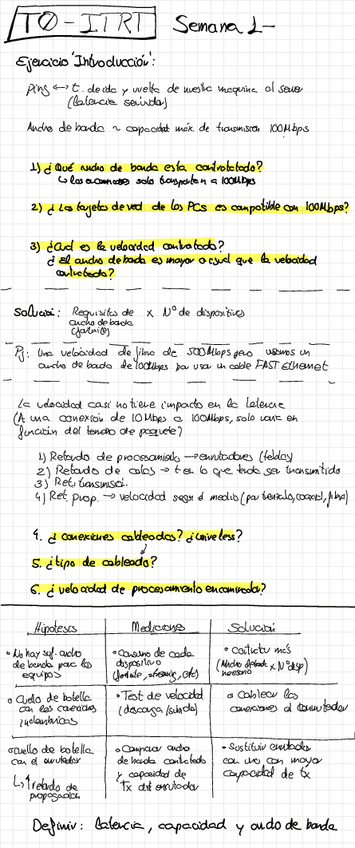 TØ - ITRT Semana 1-
Ejercicio "Introducción":
Ping ↔ t. de ida y vuelta de nuestra maquina al server
(latencia sevida)
Ancho de banda ~ capacidad máx. de transmision 100Mbps
1) ¿Qué ancho de banda esta contratado?
↳ los solo transportan a 100Mbps
2) ¿Las tarjetas de red de los PCs es compatible con 100Mbps?
3) ¿Cual es la velocidad contratada?
¿El ancho de banda es mayor o igual que la velocidad
contratada?
Solucion: Requisitos de x Nº de dispositivos
ancho de banda
Pj: Una velocidad de fibra de 500Mbps pero usamos un
ancho de banda de 100Mbps por usar un cable FAST Ethernet
La velocidad casi no tiene impacto en la latencia
(A una conexion de 10Mbps a 100Mbps, solo varia en
función del tamaño de paquete)
1) Retardo de procesamiento → enrutadores (delay)
2) Retardo de colas → t en lo que tarda ser transmitido
3) Ret. transmisi.
4) Ret. prop. → velocidad segun el medio (par trenzado, coaxial, fibra)
4. ¿conexiones cableadas? ¿wireless?
5. ¿tipo de cableado?
6. ¿velocidad de procesamiento encaminador?
Hipotesis Mediciones Solución
• No hay suf. ancho
de banda para los
equipos
• Consumo de cada
dispositivo
• contratar más
(Ancho de banda x Nº disp)
necesario
• Cuello de botella
con las conexiones
inalambricas
• Test de velocidad
(descarga/subida)
• Cablear las
conexiones al conmutador
• cuello de botella
con el enrutador
↳ ↑ retardo de
propagación
• Comparar ancho
de banda contratado
y capacidad de
tx del enrutador
• Sustituir enrutador
con uno con mayor
capacidad de tx
Definir: latencia, capacidad y ancho de banda